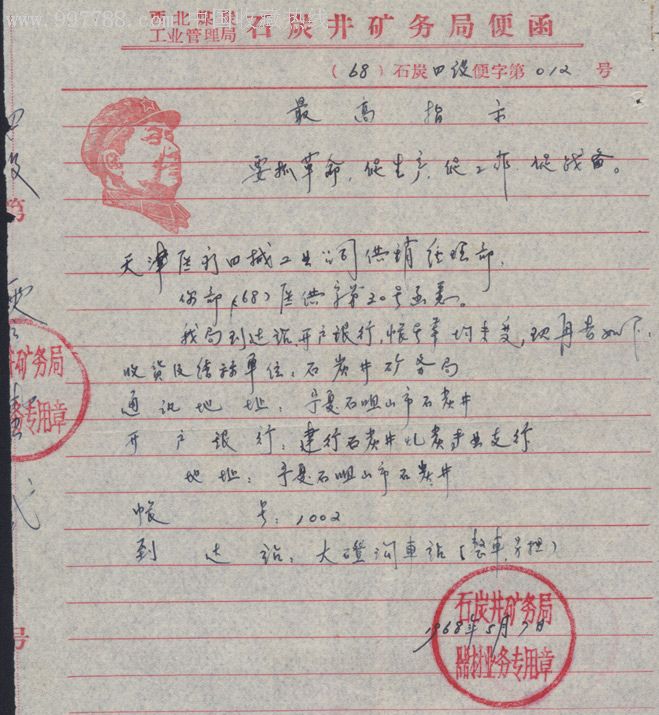 www.997788.com 中国收藏热线
西北煤炭
工业管理局 石炭井矿务局便函
(68)石炭四设便字第012号
最高指示
要抓革命,促生产,促工作,促战备。
天津医疗四械工业公司供销经理部,
你部(68)医供字第20号函悉。
我局到达站开户银行,帐号等均未变,现再告如下:
收货及结算单位:石炭井矿务局
通讯地址:宁夏石咀山市石炭井
开户银行:建行石炭井专业支行
地址:宁夏石咀山市石炭井
帐号:1002
到达站:大磴沟車站(整車、另担)
石炭井矿务局
1968年5月9日
器材业务专用章
第
井矿务局
务专用章
号